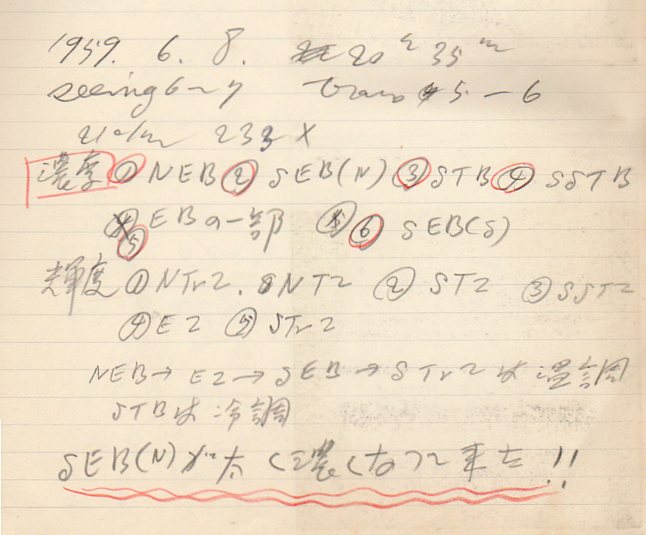 1959. 6. 8. 20h 35m
seeing 6~7 trans 5-6
21c/m 233×
濃度 ① NEB ② SEB(N) ③ STB ④ SSTB
⑤ EBの一部 ⑥ SEB(S)
輝度 ① NTrZ. NTZ ② STZ ③ SSTZ
④ EZ ⑤ STrZ
NEB→ EZ→ SEB → STrZ は 温調
STBは 冷調
SEB(N)が太く濃くなって来た!!